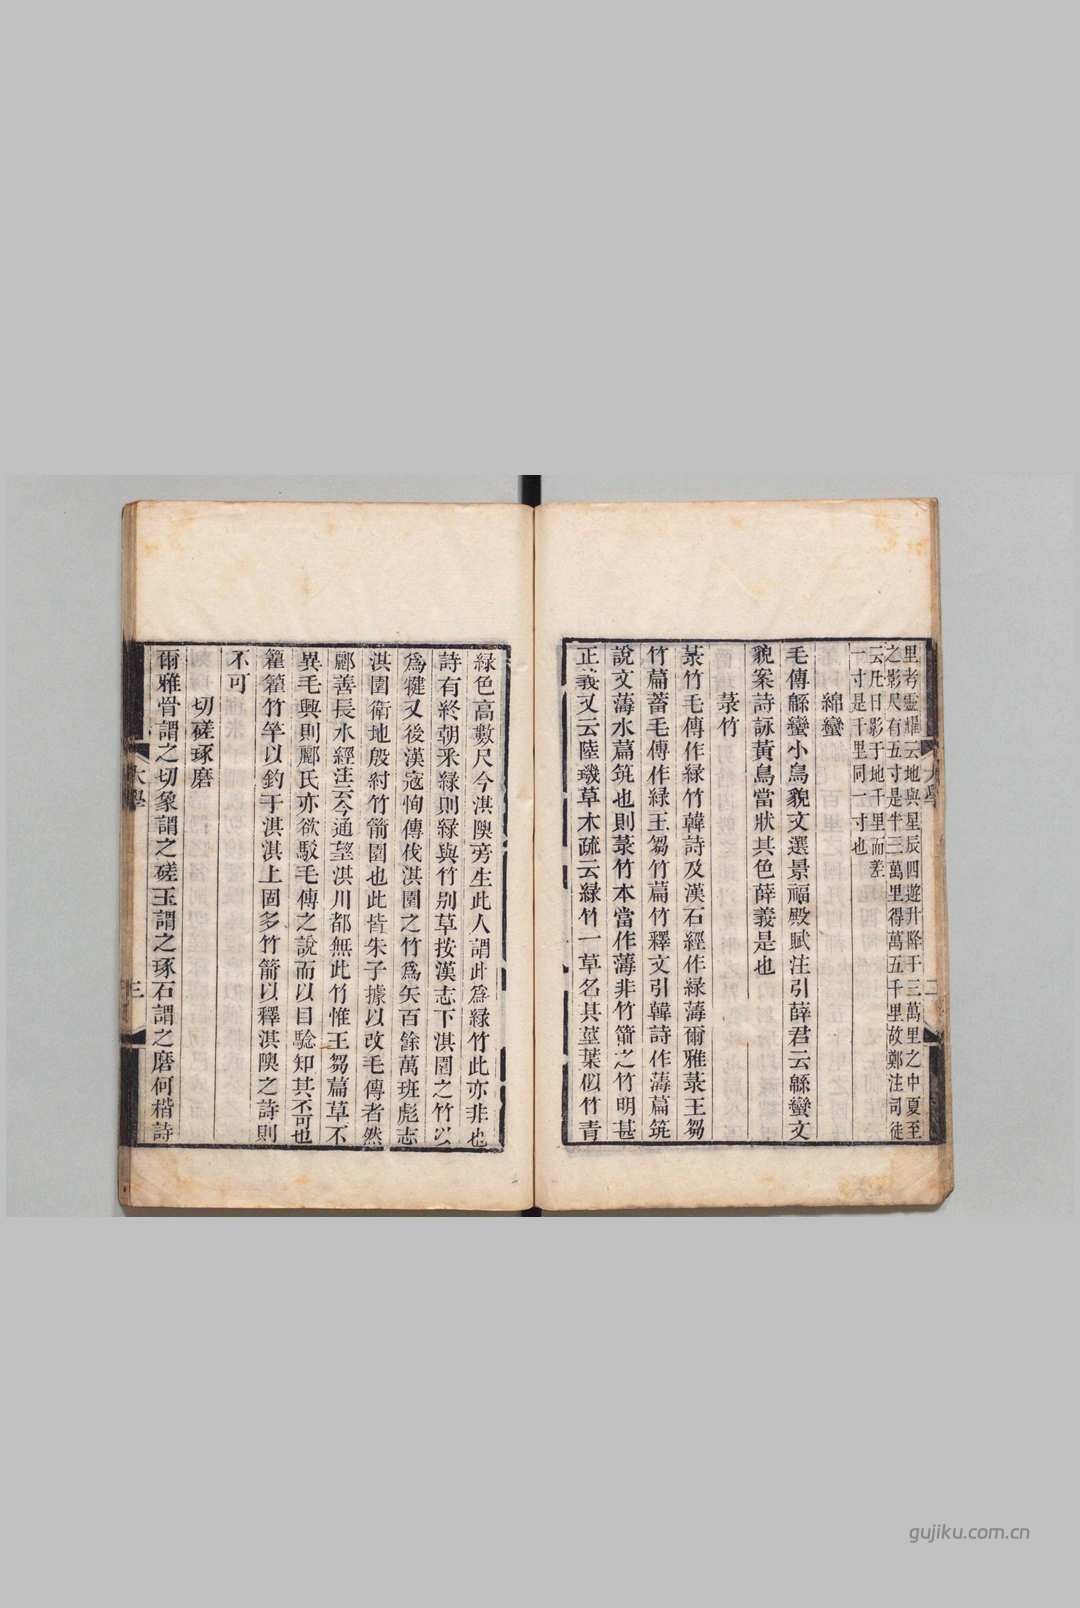 里考靈耀云地與星辰四遊升降于三萬里之中夏至
之影尺有五寸是半三萬里得萬五千里故鄭注司徒
云凡日影于地千里而差
一寸是千里同一寸也
綿蠻
毛傳緜蠻小鳥貌文選景福殿賦注引薛君云緜蠻文
貌案詩詠黃鳥當狀其色薛義是也
菉竹
菉竹毛傳作緑竹韓詩及漢石經作緑薄爾雅菉王芻
竹萹蓄毛傳作緑王芻竹萹竹釋文引韓詩作薄萹筑
說文薄水萹筑也則菉竹本當作薄非竹箭之竹明甚
正義又云陸璣草木疏云緑竹一草名其莖葉似竹青
緑色高數尺今淇隩旁生此人謂此爲緑竹此亦非也
詩有終朝釆緑則緑與竹別草按漢志下淇園之竹以
爲楗又後漢寇恂傳伐淇園之竹爲矢百餘萬班彪志
淇園衛地殷紂竹箭園也此皆朱子據以改毛傳者然
酈善長水經注云今通望淇川都無此竹惟王芻萹草不
異毛興則酈氏亦欲駁毛傳之說而以目驗知其不可也
籊籊竹竿以釣于淇淇上固多竹箭以釋淇隩之詩則
不可
切磋琢磨
爾雅骨謂之切象謂之磋玉謂之琢石謂之磨何楷詩
大學
二
大學
三
gujiku.com.cn